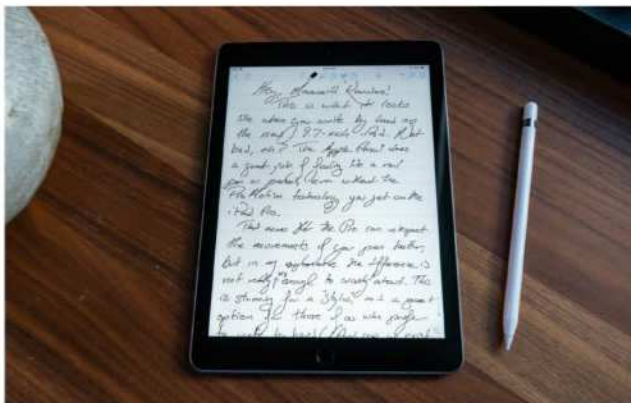 Hey Macworld Readers!
This is what it looks
like when you write by hand on
the new 9.7-inch iPad. Not
bad, eh? The Apple Pencil does
a great job of feeling like a real
pen or pencil, even without the
ProMotion technology you get on the
iPad Pro.
That means that the Pro can
the movements of your pen better,
but in my experience the difference is
not really enough to worry about. This
is stunning for a "stylus," and a great
option for those of us who prefer
to write by hand